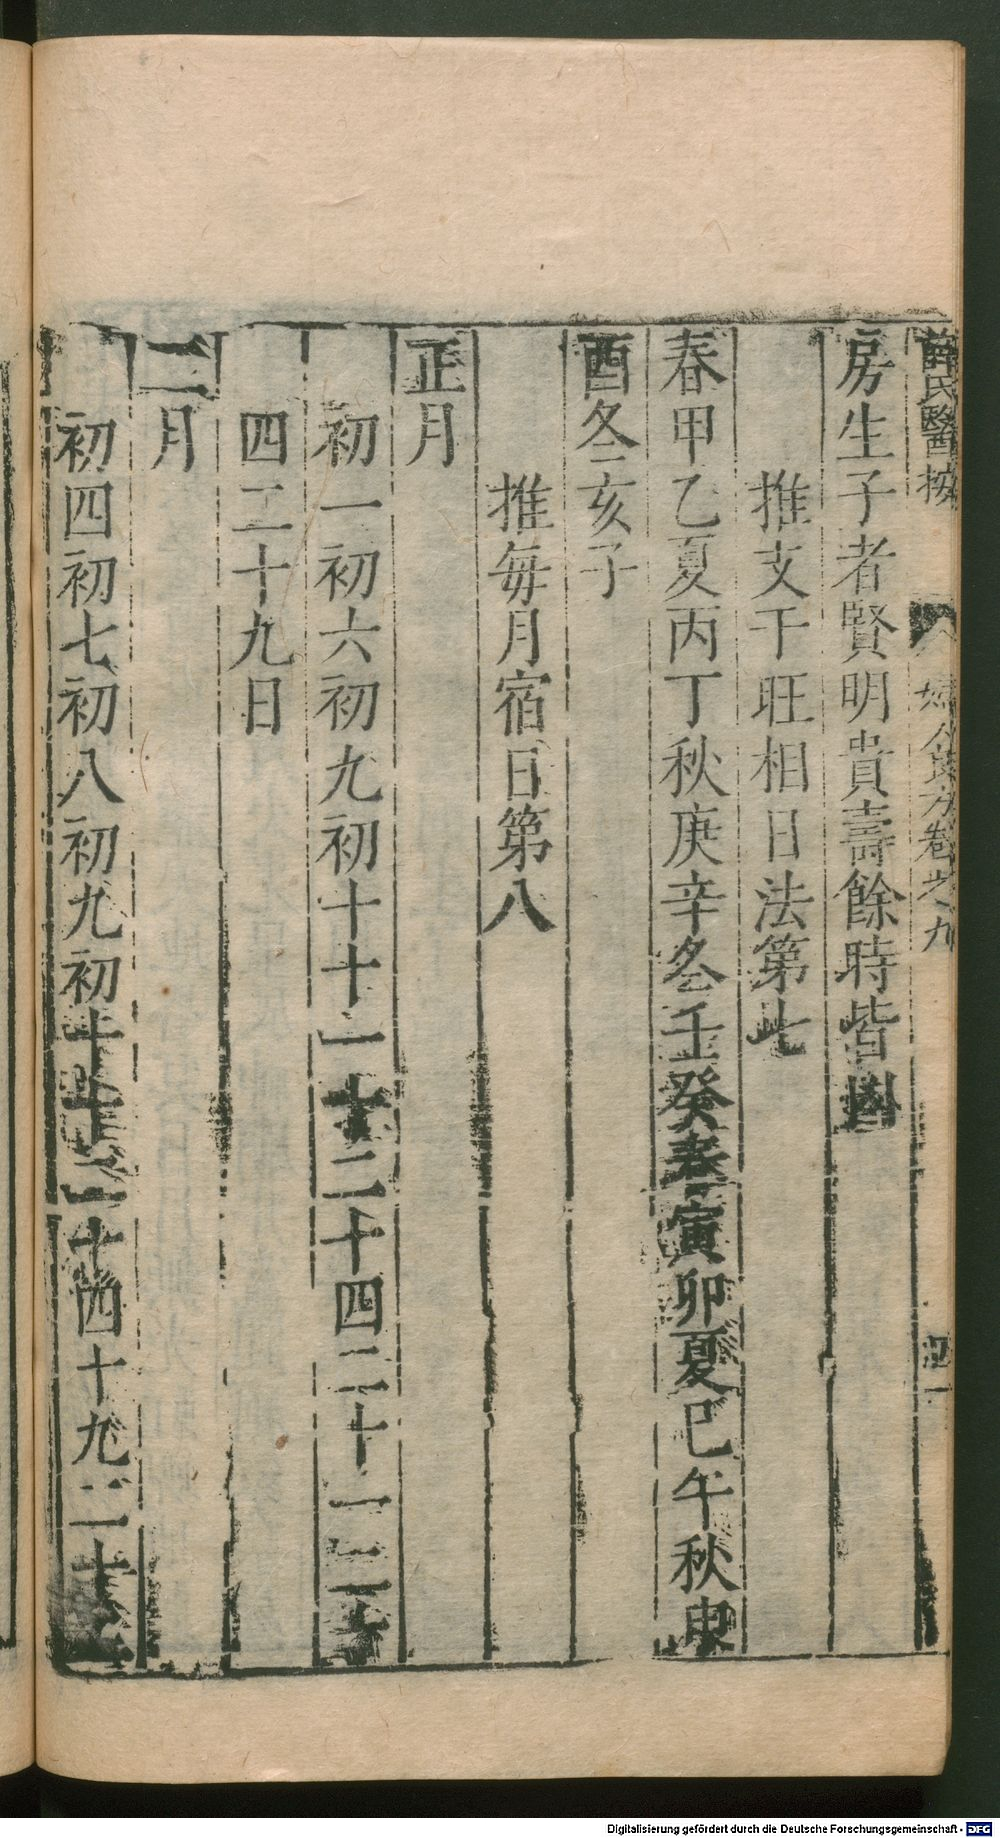 薛氏醫按
婦人良方卷之九
房生子者賢明貴壽餘時皆凶
推支干旺相日法第七
春甲乙夏丙丁秋庚辛冬壬癸春寅卯夏巳午秋申
酉冬亥子
推每月宿日第八
正月
初一初六初九初十十一十二十四二十一二十
四二十九日
二月
初四初七初八初九初十十二十四十九二十
Digitalisierung gefördert durch die Deutsche Forschungsgemeinschaft - DFG